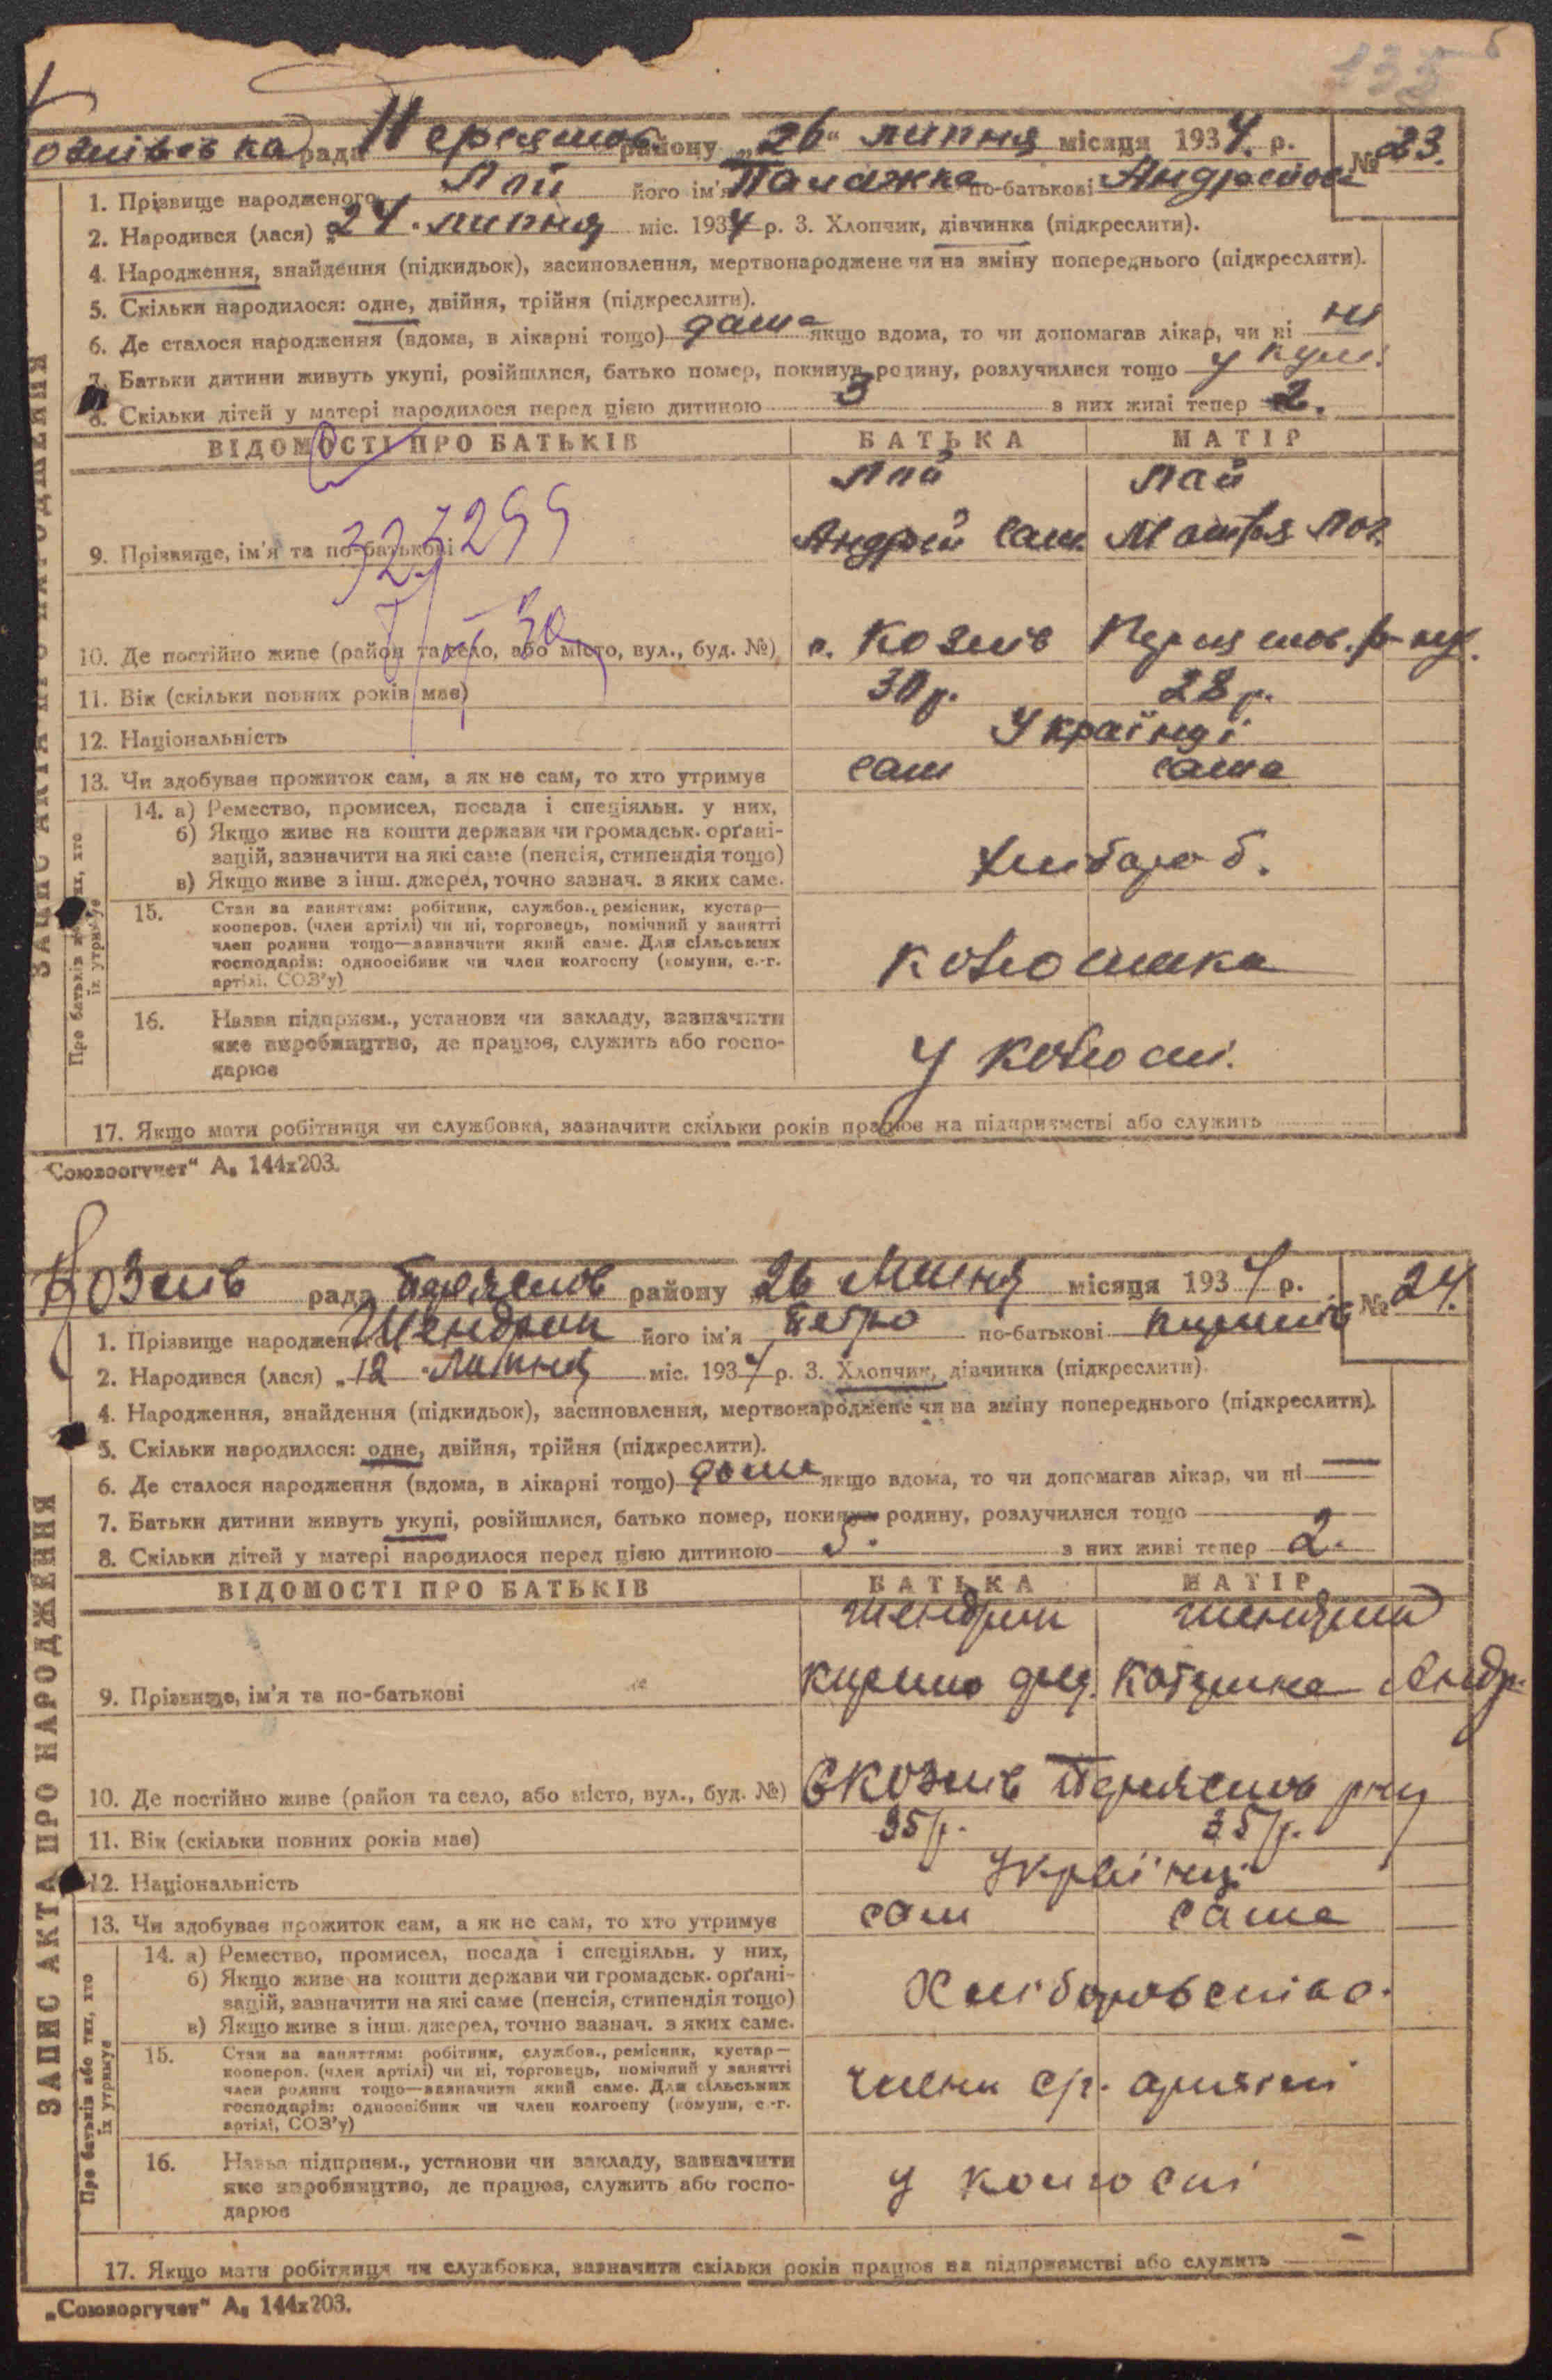 133
рада Переяслов району „26" липня місяця 1934 р. № 23.
1. Прізвище народженого його ім'я Палажка по-батькові Андреївна
2. Народився (лася) „24" липня міс. 1934 р. 3. Хлопчик, дівчинка (підкреслити).
4. Народження, знайдення (підкидьок), засиновлення, мертвонароджене чи на зміну попереднього (підкреслити).
5. Скільки народилося: одне, двійня, трійня (підкреслити).
6. Де сталося народження (вдома, в лікарні тощо) дома якщо вдома, то чи допомагав лікар, чи ні ні
7. Батьки дитини живуть укупі, розійшлися, батько помер, покинув родину, розлучилися тощо укупі.
8. Скільки дітей у матері народилося перед цією дитиною 3 з них живі тепер 2.
ВІДОМОСТІ ПРО БАТЬКІВ БАТЬКА МАТІР
Андрій Сам.
9. Прізвище, ім'я та по-батькові
10. Де постійно живе (район та село, або місто, вул., буд. №) с. Козлів Переяслов. р-ну.
11. Вік (скільки повних років має) 30 р. 28 р.
12. Національність Українці
13. Чи здобуває прожиток сам, а як не сам, то хто утримує сам сама
14. а) Ремество, промисел, посада і спеціяльн. у них,
б) Якщо живе на кошти держави чи громадськ. орґані-
зацій, зазначити на які саме (пенсія, стипендія тощо)
в) Якщо живе з інш. джерел, точно зазнач. з яких саме.
Хлібороб.
15. Стан за заняттям: робітник, службов., ремісник, кустар—
кооперов. (член артілі) чи ні, торговець, помічний у занятті
член родини тощо—зазначити який саме. Для сільських
господарів: одноосібник чи член колгоспу (комуни, с.-г.
артілі, СОЗ'у)
16. Назва підприєм., установи чи закладу, зазначити
яке виробництво, де працює, служить або госпо-
дарює
у колгосп.
17. Якщо мати робітниця чи службовка, зазначити скільки років працює на підприємстві або служить
ЗАПИС АКТА ПРО НАРОДЖЕННЯ
Про батьків або тих, хто
їх утримує
„Союзоргучет" А₈ 144x203.
Козлів рада Переяслов району 26 Липня місяця 1934 р. № 24.
1. Прізвище народженого Шендрик його ім'я Петро по-батькові Кирилів
2. Народився (лася) „12 Липня міс. 1934 р. 3. Хлопчик, дівчинка (підкреслити)
4. Народження, знайдення (підкидьок), засиновлення, мертвонароджене чи на зміну попереднього (підкреслити).
5. Скільки народилося: одне, двійня, трійня (підкреслити).
6. Де сталося народження (вдома, в лікарні тощо) дома якщо вдома, то чи допомагав лікар, чи ні —
7. Батьки дитини живуть укупі, розійшлися, батько помер, покинув родину, розлучилися тощо
8. Скільки дітей у матері народилося перед цією дитиною 5. з них живі тепер 2.
ВІДОМОСТІ ПРО БАТЬКІВ БАТЬКА МАТІР
Шендрик Шендрик
9. Прізвище, ім'я та по-батькові Кирило Катерина Андр.
10. Де постійно живе (район та село, або місто, вул., буд. №) с Козлів Переяслов р-ну
11. Вік (скільки повних років має) 35 р. 35 р.
12. Національність Українці
13. Чи здобуває прожиток сам, а як не сам, то хто утримує сам сама
14. а) Ремество, промисел, посада і спеціяльн. у них,
б) Якщо живе на кошти держави чи громадськ. орґані-
зацій, зазначити на які саме (пенсія, стипендія тощо)
в) Якщо живе з інш. джерел, точно зазнач. з яких саме.
15. Стан за заняттям: робітник, службов., ремісник, кустар—
кооперов. (член артілі) чи ні, торговець, помічний у занятті
член родини тощо—зазначити який саме. Для сільських
господарів: одноосібник чи член колгоспу (комуни, с.-г.
артілі, СОЗ'у)
члени с.г. артілі
16. Назва підприєм., установи чи закладу, зазначити
яке виробництво, де працює, служить або госпо-
дарює
у колгоспі
17. Якщо мати робітниця чи службовка, зазначити скільки років працює на підприємстві або служить —
ЗАПИС АКТА ПРО НАРОДЖЕННЯ
Про батьків або тих, хто
їх утримує
„Союзоргучет" А₈ 144x203.